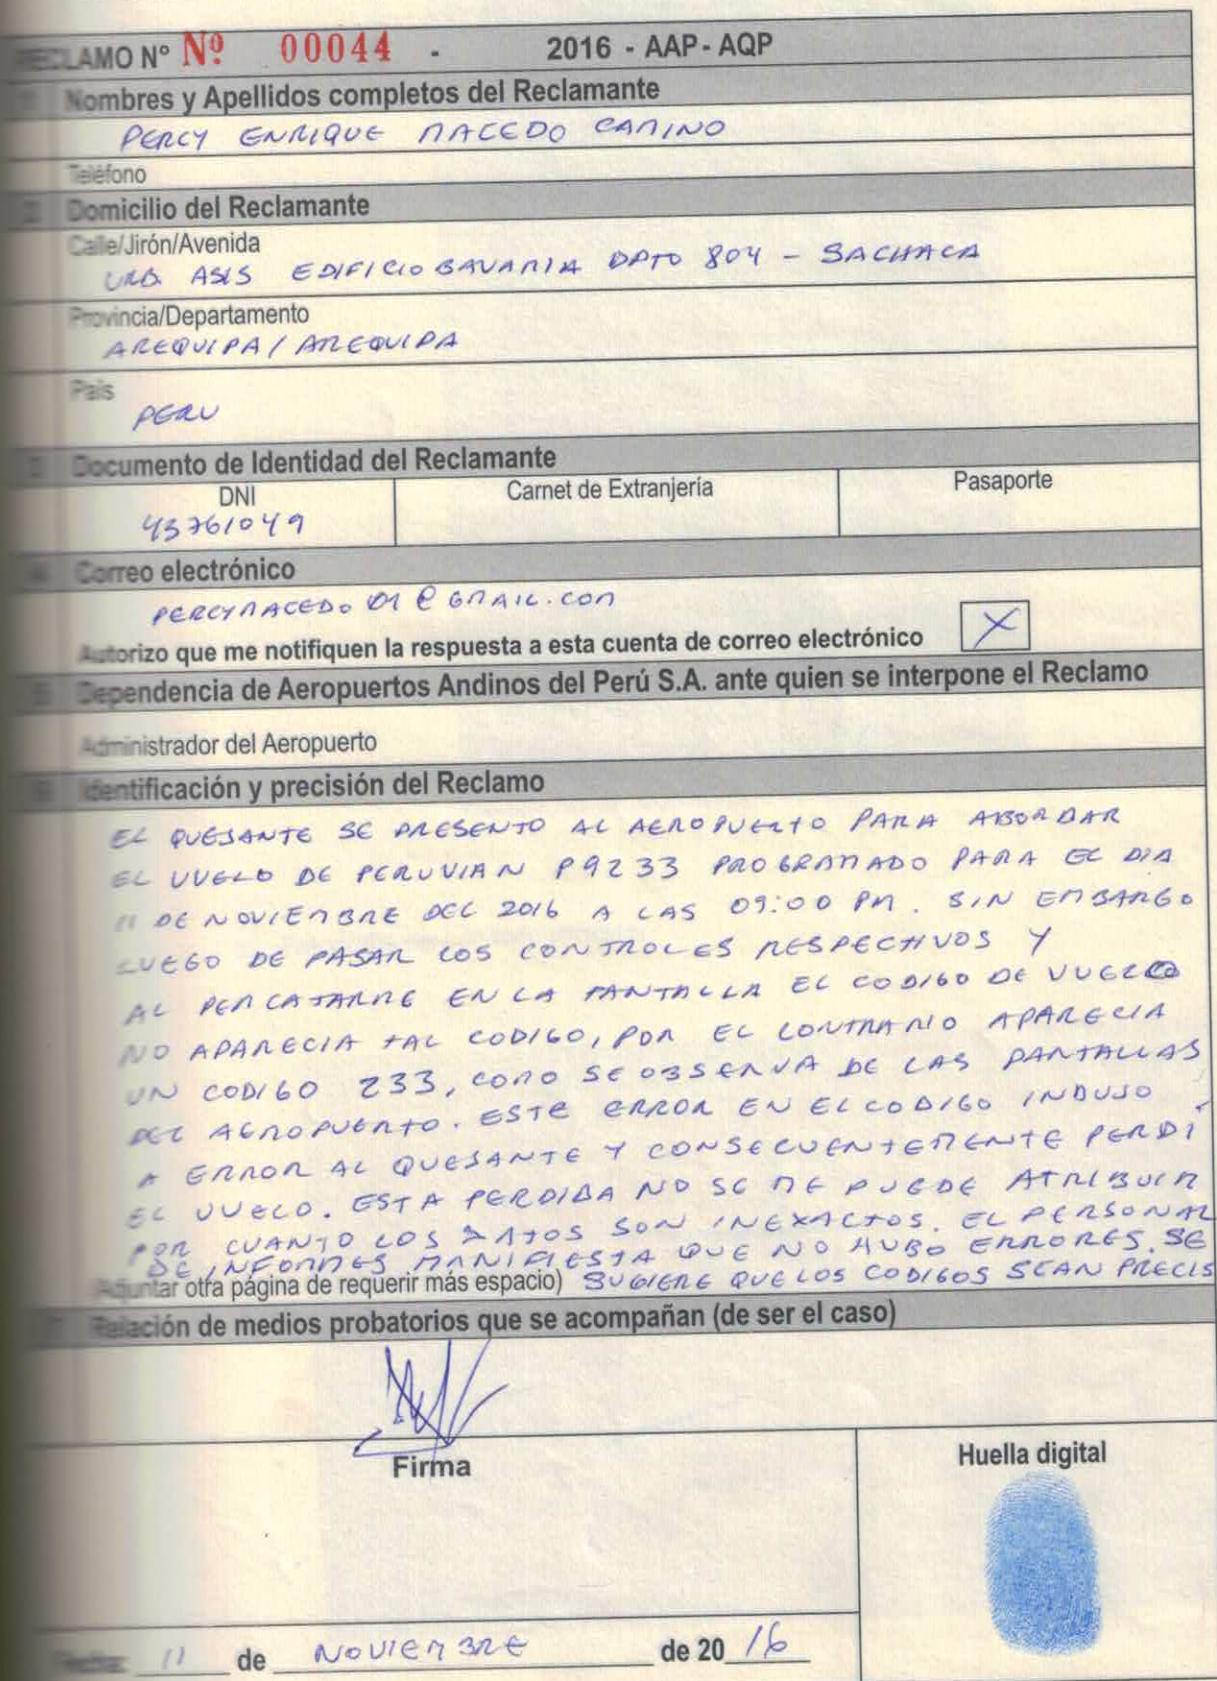 RECLAMO N° Nº 00044 - 2016 - AAP - AQP
Nombres y Apellidos completos del Reclamante
PERCY ENRIQUE MACEDO CAMINO
Teléfono
Domicilio del Reclamante
Calle/Jirón/Avenida
URB. ASIS EDIFICIO BAVARIA DPTO 804 - SACHACA
Provincia/Departamento
AREQUIPA / AREQUIPA
País
PERU
Documento de Identidad del Reclamante
DNI Carnet de Extranjería Pasaporte
43761049
Correo electrónico
PERCYMACEDO01@GMAIL.COM
Autorizo que me notifiquen la respuesta a esta cuenta de correo electrónico X
Dependencia de Aeropuertos Andinos del Perú S.A. ante quien se interpone el Reclamo
Administrador del Aeropuerto
Identificación y precisión del Reclamo
EL QUEJANTE SE PRESENTO AL AEROPUERTO PARA ABORDAR
EL VUELO DE PERUVIAN P9233 PROGRAMADO PARA EL DIA
11 DE NOVIEMBRE DEL 2016 A LAS 09:00 PM. SIN EMBARGO
LUEGO DE PASAR LOS CONTROLES RESPECTIVOS Y
AL PERCATARME EN LA PANTALLA EL CODIGO DE VUELO
NO APARECIA TAL CODIGO, POR EL CONTRARIO APARECIA
UN CODIGO 233, COMO SE OBSERVA DE LAS PANTALLAS
DEL AEROPUERTO. ESTE ERROR EN EL CODIGO INDUJO
A ERROR AL QUEJANTE Y CONSECUENTEMENTE PERDÍ
EL VUELO. ESTA PERDIDA NO SE ME PUEDE ATRIBUIR
POR CUANTO LOS DATOS SON INEXACTOS. EL PERSONAL
DE INFORMES MANIFIESTA QUE NO HUBO ERRORES. SE
Adjuntar otra página de requerir más espacio) SUGIERE QUE LOS CODIGOS SEAN PRECIS
Relación de medios probatorios que se acompañan (de ser el caso)
Firma
Huella digital
Fecha: 11 de NOVIEMBRE de 2016